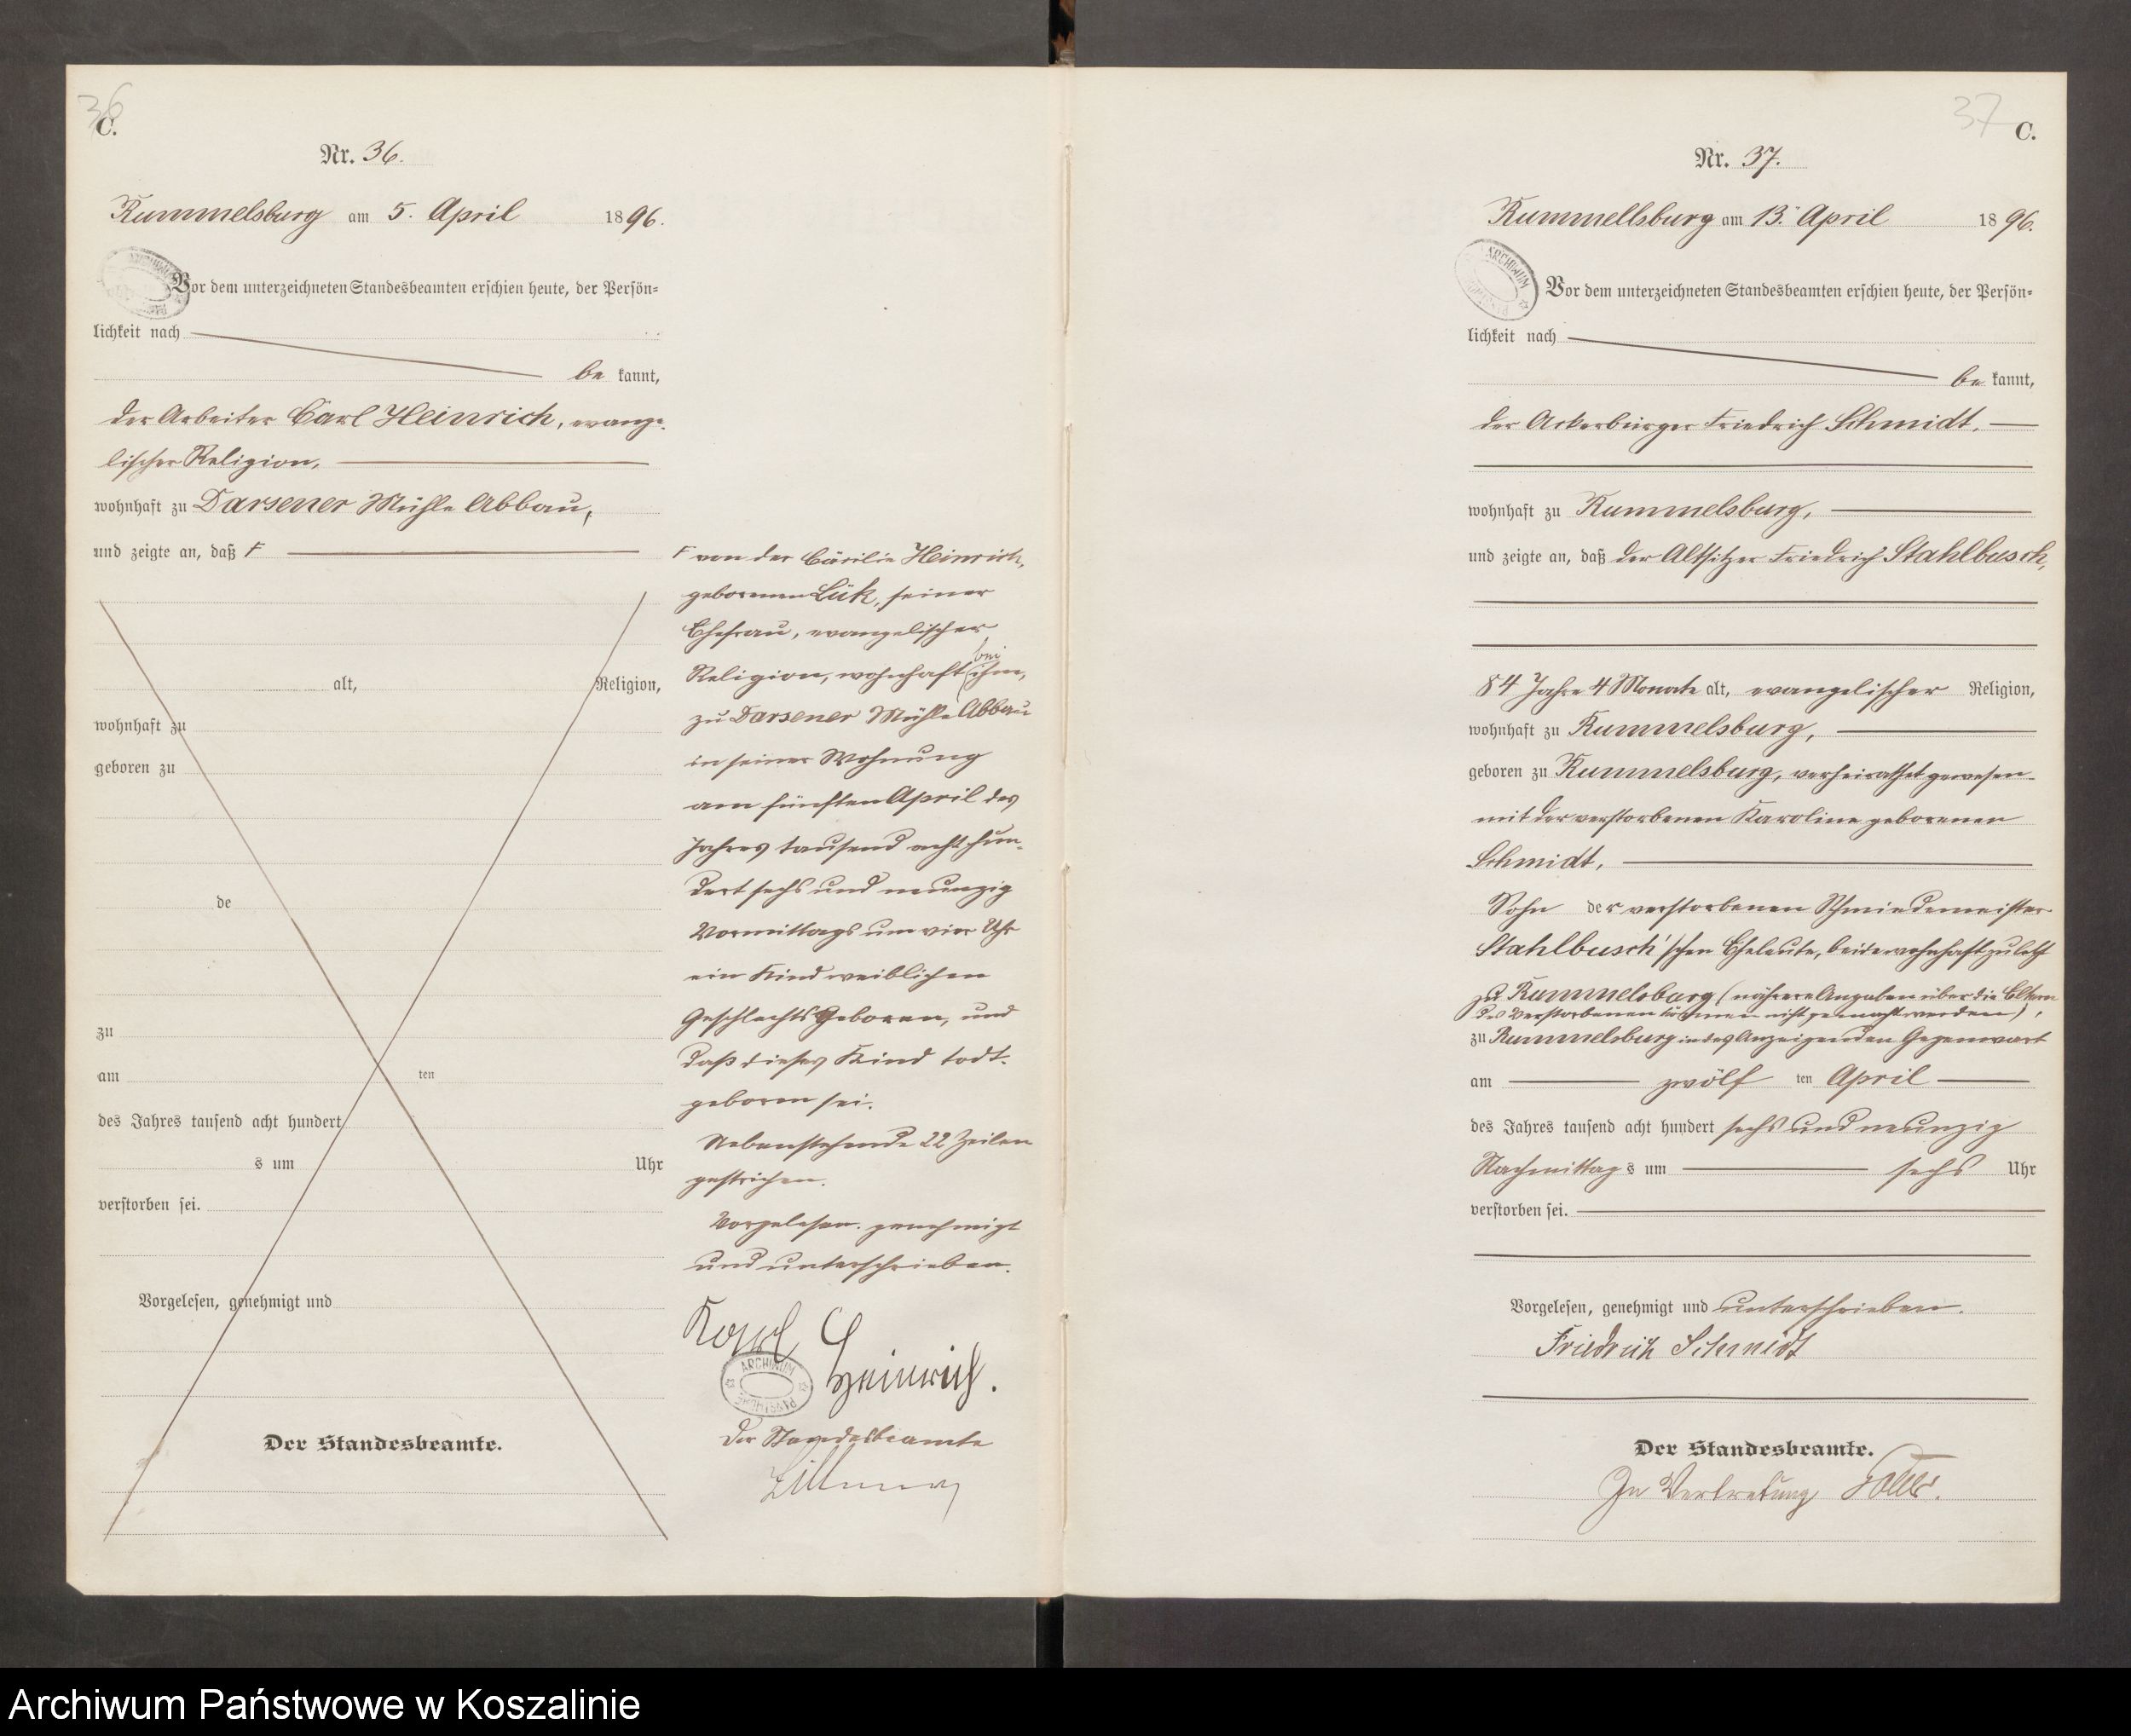 36
C.
Nr. 36.
Rummelsburg am 5. April 1896.
Vor dem unterzeichneten Standesbeamten erschien heute, der Persön=
lichkeit nach
be kannt,
der Arbeiter Carl Heinrich, evange-
lischer Religion,
wohnhaft zu Darsener Mühle Abbau,
und zeigte an, daß F
alt, Religion,
wohnhaft zu
geboren zu
de
zu
am ten
des Jahres tausend acht hundert
s um Uhr
verstorben sei.
Vorgelesen, genehmigt und
Der Standesbeamte.
F von der Cäcilie Heinrich,
geborenen Lük, seiner
Ehefrau, evangelischer
Religion, wohnhaft bei ihm,
zu Darsener Mühle Abbau
in seiner Wohnung
am fünften April des
Jahres tausend acht hun-
dert sechs und neunzig
Vormittags um vier Uhr
ein Kind weiblichen
Geschlechts geboren, und
daß dieses Kind todt-
geboren sei.
Nebenstehende 22 Zeilen
gestrichen.
Vorgelesen, genehmigt
und unterschrieben.
Karl
Heinrich.
ARCHIWUM
PAŃSTWOWE
Der Standesbeamte
37
C.
Nr. 37.
Rummellsburg am 13. April 1896.
ARCHIWUM
Vor dem unterzeichneten Standesbeamten erschien heute, der Persön=
lichkeit nach
be kannt,
der Ackerbürger Friedrich Schmidt,
wohnhaft zu Rummelsburg,
und zeigte an, daß der Altsitzer Friedrich Stahlbusch,
84 Jahre 4 Monate alt, evangelischer Religion,
wohnhaft zu Rummelsburg,
geboren zu Rummelsburg, verheirathet gewesen
mit der verstorbenen Karoline geborenen
Schmidt,
Sohn der verstorbenen Schmiedemeister
Stahlbusch'schen Eheleute, beide wohnhaft zuletzt
zu Rummelsburg (nähere Angaben über die Eltern
des Verstorbenen können nicht gemacht werden),
zu Rummelsburg in des Anzeigenden Gegenwart
am zwölf ten April
des Jahres tausend acht hundert sechs und neunzig
Nachmittag s um sechs Uhr
verstorben sei.
Vorgelesen, genehmigt und unterschrieben.
Friedrich Schmidt
Der Standesbeamte.
In Vertretung
Archiwum Państwowe w Koszalinie